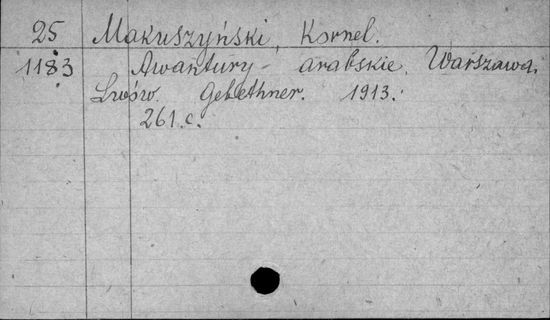 25 Makuszyński, Kornel.
1183 Awantury - arabskie. Warszawa.
Lwów. Gebethner. 1913.
261.c.